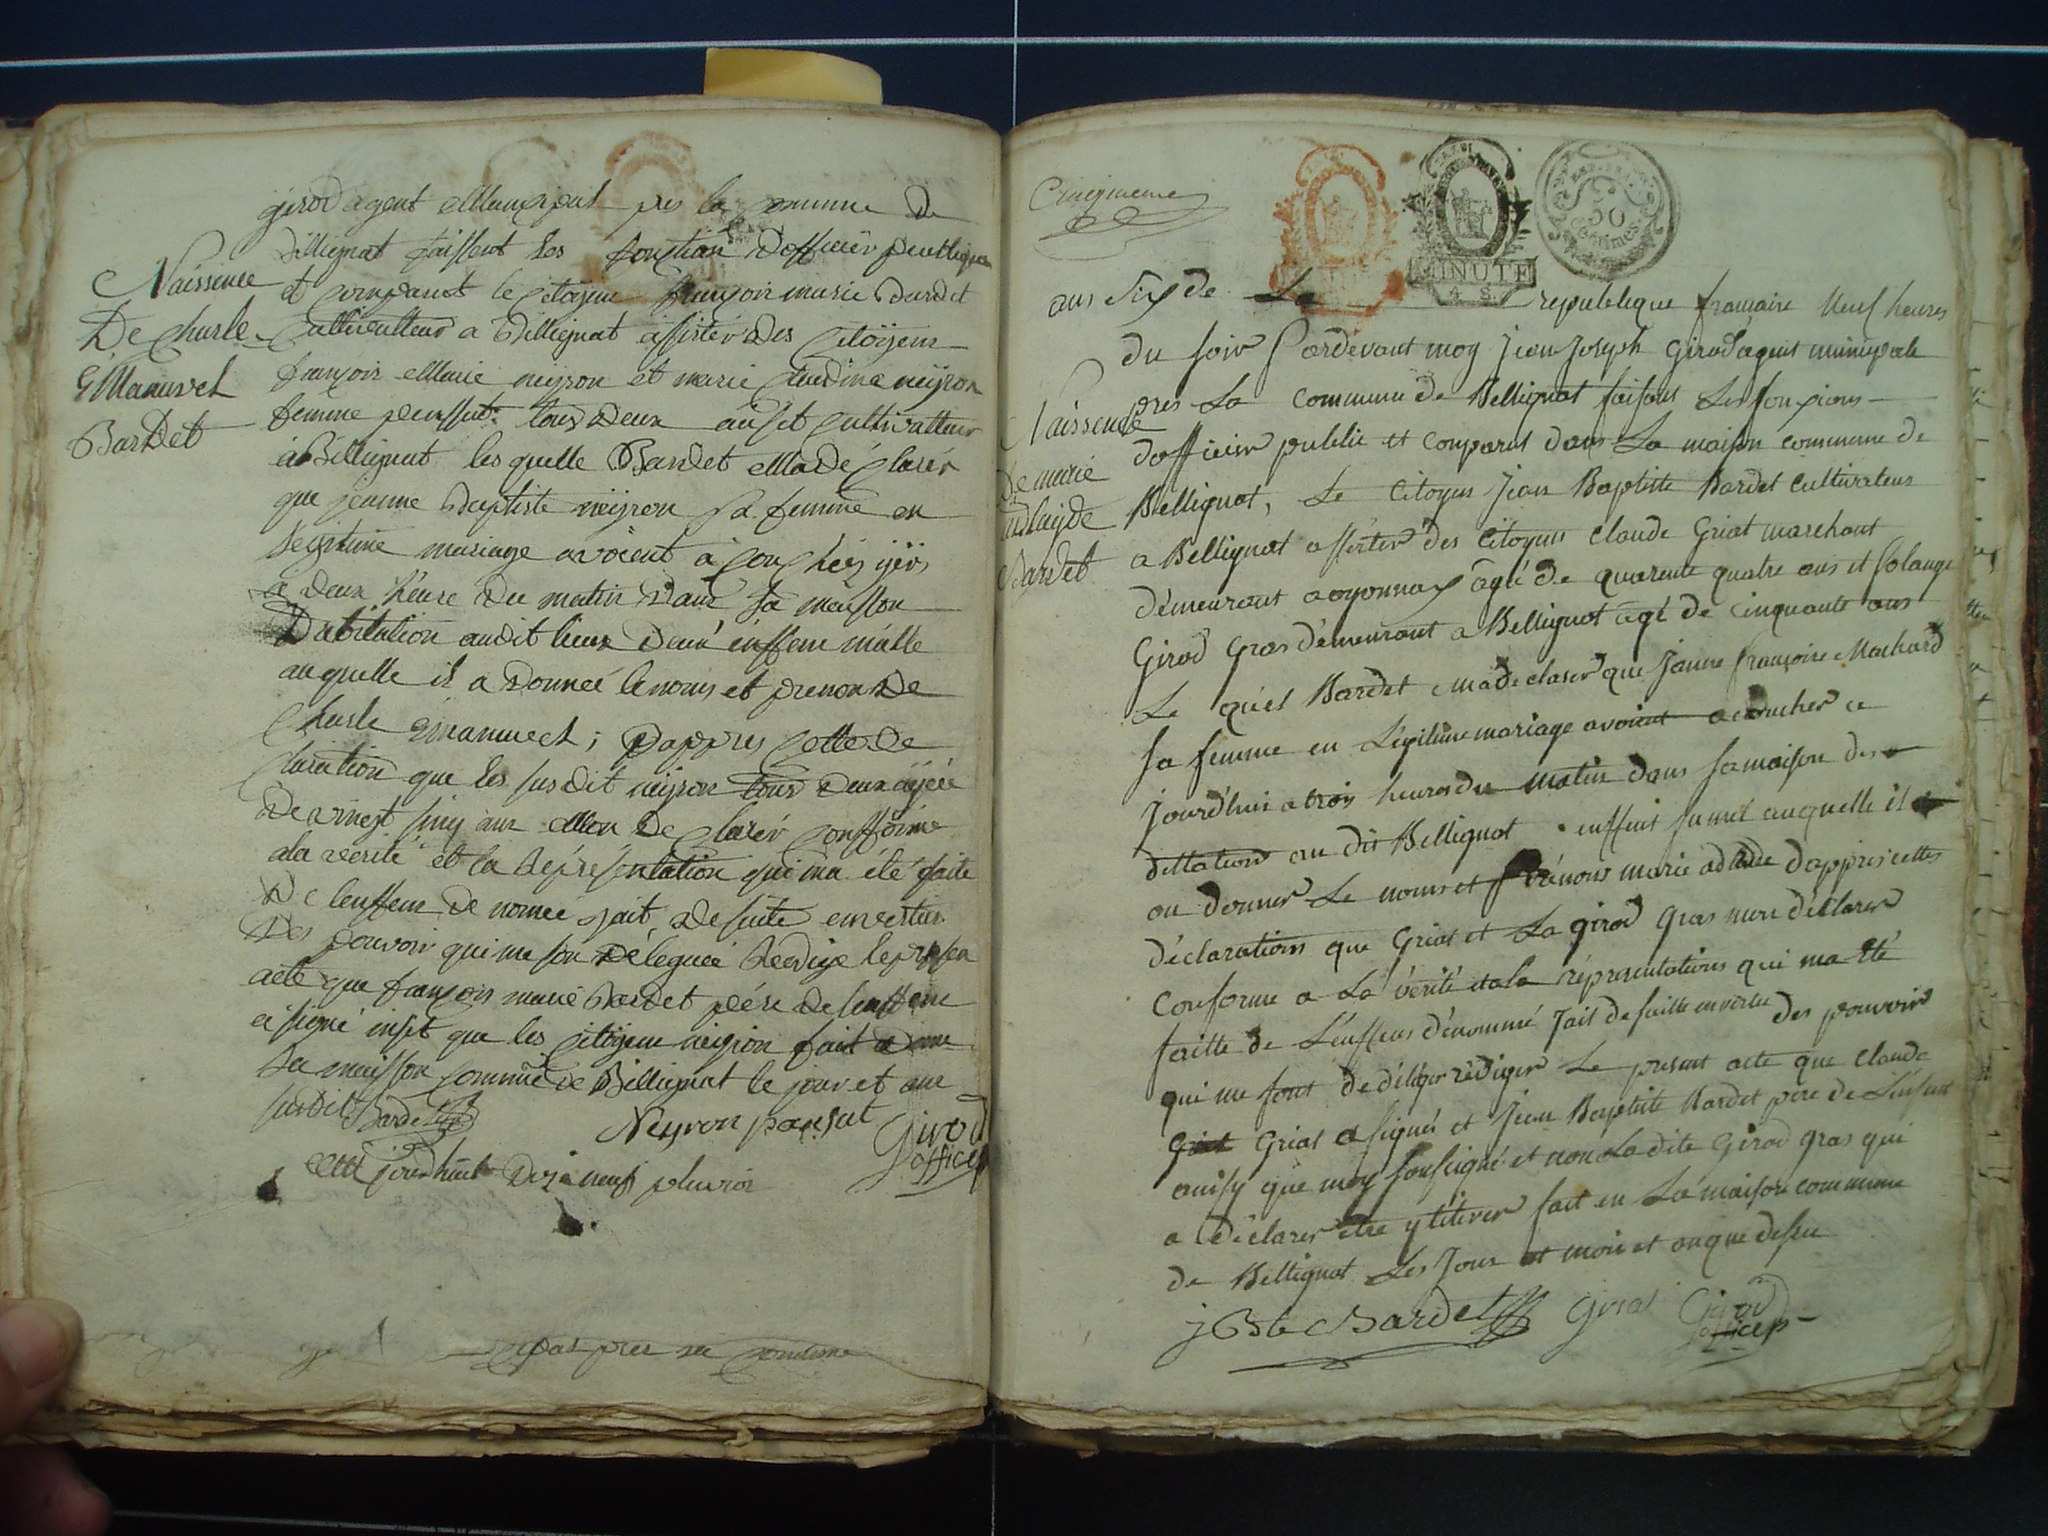 girod agent Municipal pres la comune de
Billignat faissent les fonction D'officier peublique
Naissence
De Charle
Emanuel
Bardet
et comparut le Citoyen françois marie Bardet
Cultivatteur a Billignat assister des Citoyens
françois Marie neyron et marie Claudine neyron
femme pansut tous deux aussit Cultivatteur
à Billignat les quelle Bardet Ma dé Clarér
que jeanne Baptiste neyron sa femme en
legitime mariage avoient a Couchéz yér
a deux héure Du matin Dans sa maisson
D'abitation audit lieux Deun énffent malle
au quelle il a Donneé le noms et prenom De
Charle Emanuel ; Dappres Cette De
claration que les sus dit neyron tous Deux ajéé
De vinest sinq ans Mon De Clarér Confforme
a la vérité et la Représentation qui ma été faite
De lenffent De nomeé jait De suite en vertus
Des pouvoir qui me son Déleguéé Redigé le presen
acte que françois marie Bardet péére De lenffent
a signé insit que les Citoyens neyron fait a
la maisson Comune De Billignat le jour et ans
susdit Bardet
Neyron pansut
Girod
officep
jourdhuit Dix neuf pluvios
Cinqiemme
30
Centimes
MINUTE
4 S.
ans Six de La republique française Neuf heures
du soir Pardevant moy Jean Joseph Girod agent municipale
pres La commune de Bellignat faisant Les fonxions
Naissence
De marie
adelayde
Bardet
dofficier public et comparut dans La maison commune de
Bellignat, Le Citoyen Jean Baptiste Bardet cultivateur
a Bellignat assister des Citoyens Claude Griat marchant
demeurant a oyonnax âgé de quarente quatre ans et Solange
Girod Gras demeurant a Bellignat agé de cinquante ans
Le quel Bardet ma declarer que Janne françoise Machard
sa femme en Légitime mariage avoient accoucher ce
jourd'huis a trois heures du matin dans sa maison de
dittation au dit Bellignat enffent fumel auquelle il
on donner Le noms et prénons marie adlaide dappres cettes
déclarations que Griat et La girod Gras mon déclarer
Conforme a La vérité et la répresentations qui ma été
faitte de L'enffens dénommé Jait de suitte en vertu des pouvoir
qui me sont de déléger rédiger Le present acte que Claude
Griat a signés et Jean Baptiste Bardet pere de L'enfent
ainsy que moy soussigné et non La dite Girod gras qui
a déclarer être ylitérer fait en La maison commune
de Bellignat Les Jour et mois et an que dessu
j Bte Bardet Griat Girod
officep